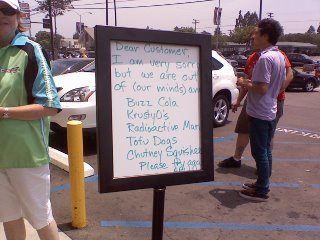 Dear Customer,
I am very sorry
but we are out
of (our minds) and
Buzz Cola
KrustyO's
Radioactive Man
Tofu Dogs
Chutney Squishee
Please try again